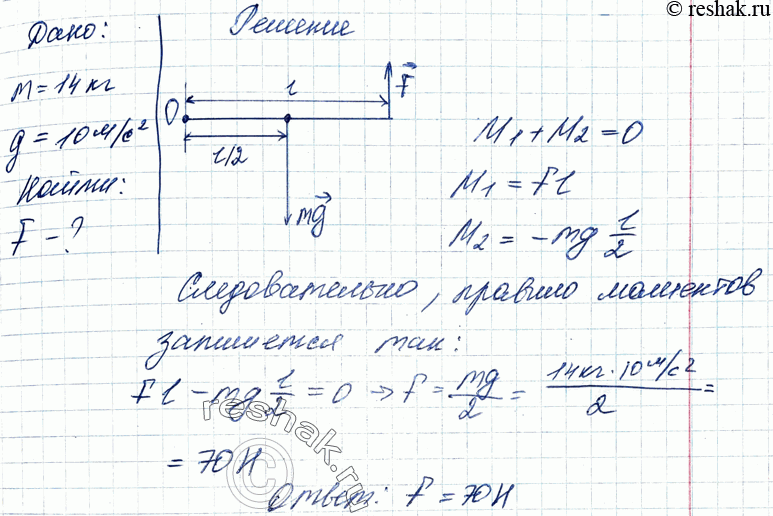 © reshak.ru
Дано:
m = 14 кг
g = 10 м/с²
Найти:
F - ?
Решение
O
l
l/2
F⃗
mg⃗
M₁ + M₂ = 0
M₁ = Fl
M₂ = -mg l/2
Следовательно, правило моментов
запишется так:
Fl - mg l/2 = 0 → F = mg/2 = 14кг · 10 м/с² / 2 =
= 70 Н
Ответ: F = 70 Н
reshak.ru
©